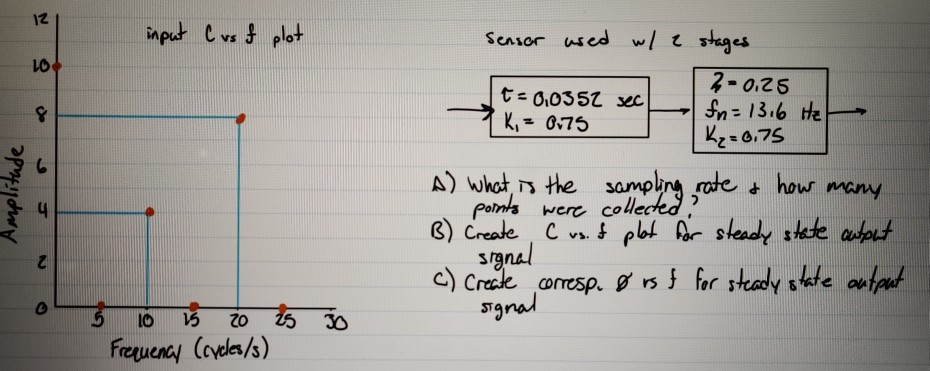 input C vs f plot
12
10
8
6
4
2
0
Amplitude
5 10 15 20 25 30
Frequency (cycles/s)
Sensor used w/ 2 stages
τ = 0.0352 sec
K₁ = 0.75
ζ = 0.25
fn = 13.6 Hz
K₂ = 0.75
A) What is the sampling rate & how many
points were collected?
B) Create C vs. f plot for steady state output
signal
C) Create corresp. Ø vs f for steady state output
signal